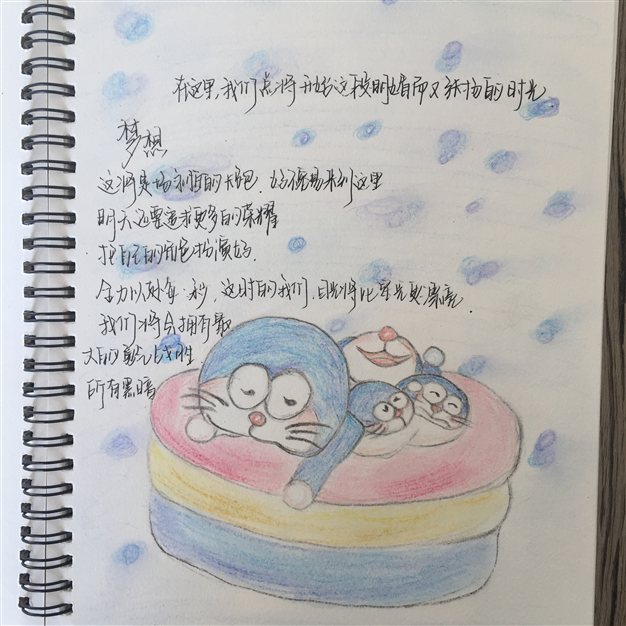 在这里,我们点将开始这段明媚而又张扬的时光
梦想
这将是场利的大. 好不容易来到这里
明天还要追求更多的荣耀
把自己的角色扮演好.
全力以赴每一秒, 这时的我们, 目光将比星光更漂亮.
我们将会拥有最
大的勇气战胜
所有黑暗